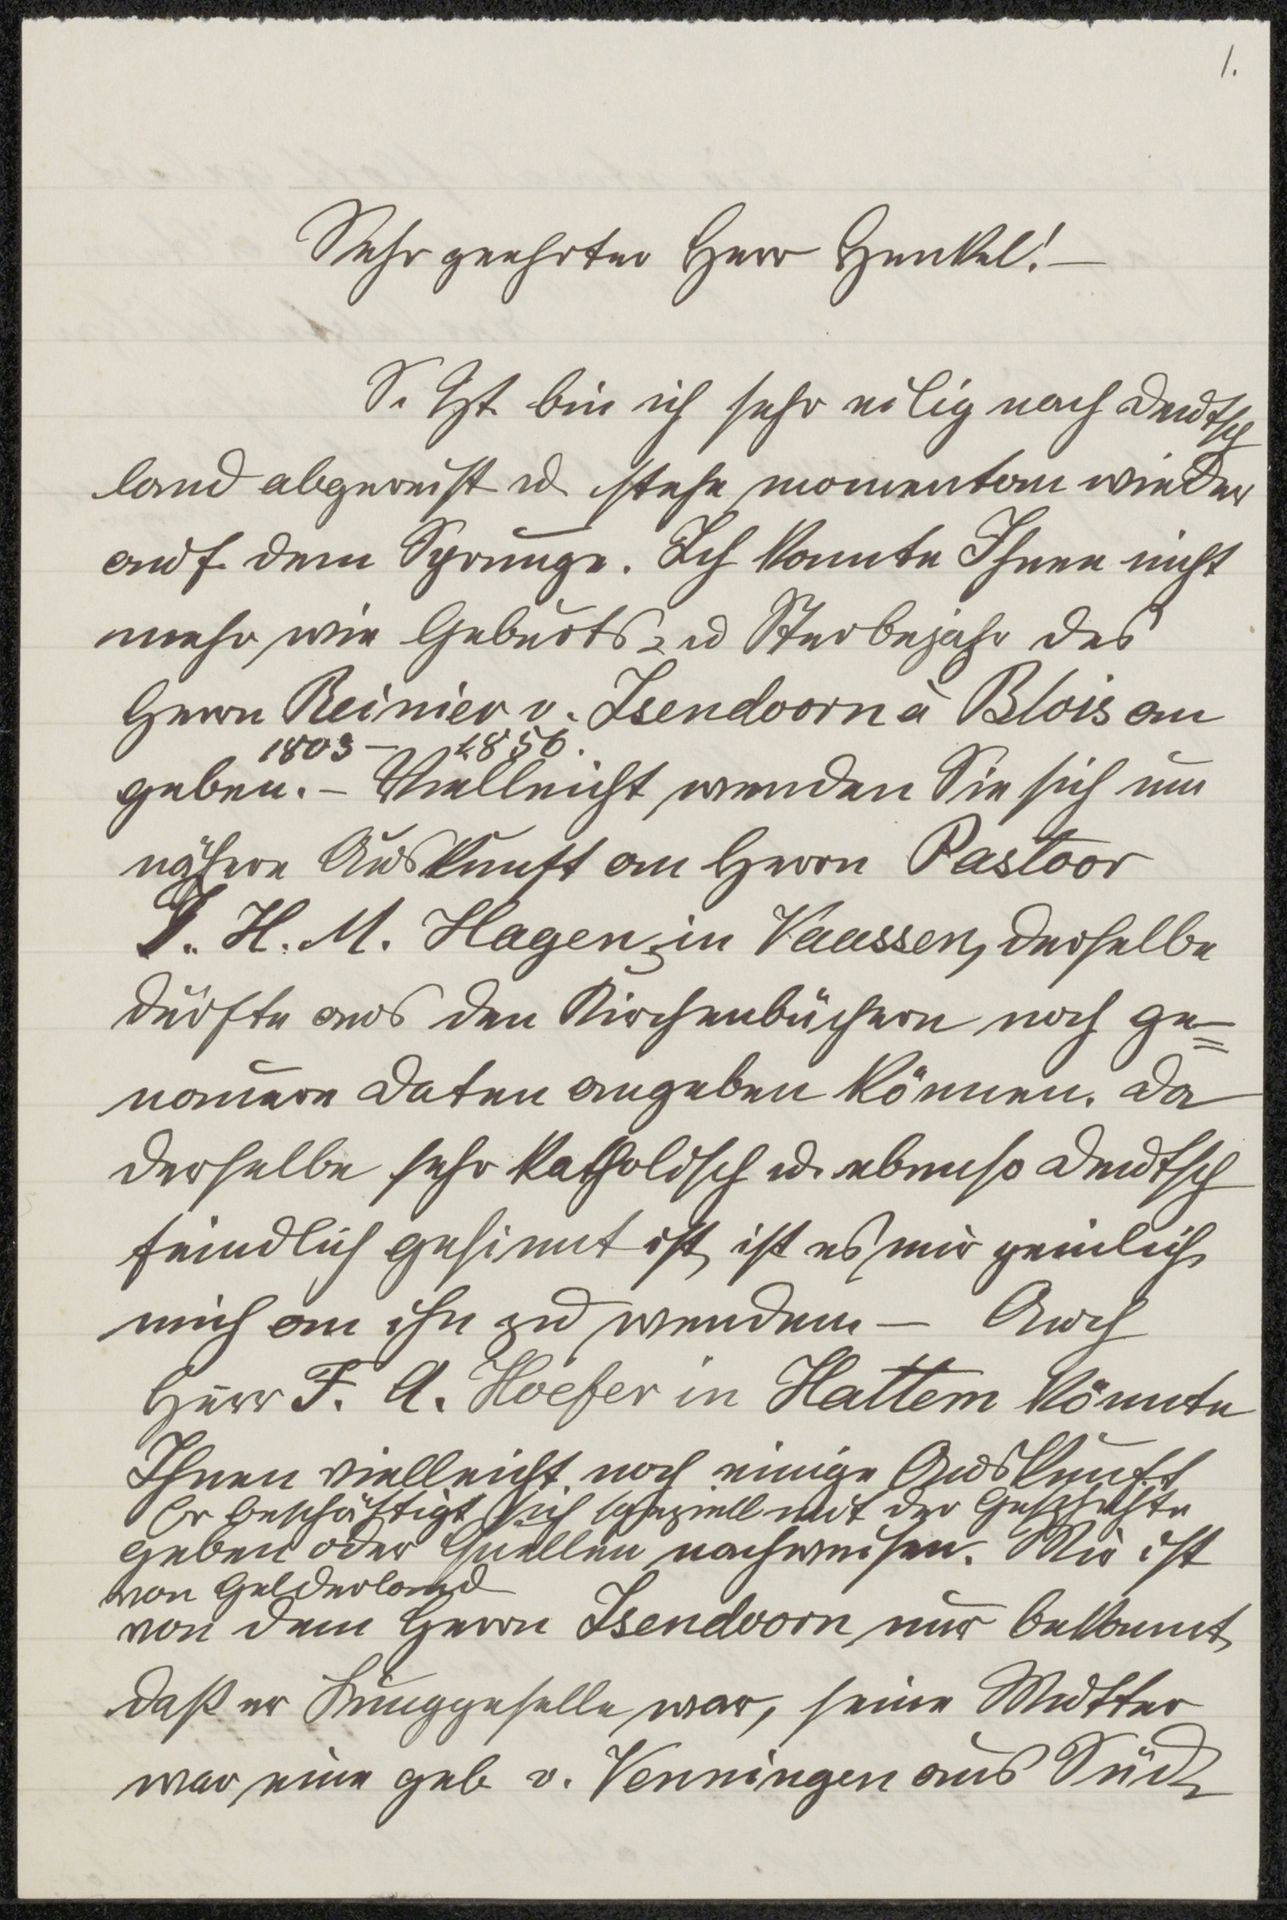 1.
Sehr geehrter Herr Henkel! —
S. Zt. bin ich sehr eilig nach Deutsch
land abgereist u. stehe momentan wieder
auf dem Sprunge. Ich konnte Ihnen nicht
mehr wie Geburts- u Sterbejahr des
Herrn Reinier v. Isendoorn à Blois an
1803 – 1856.
geben. – Vielleicht wenden Sie sich um
nähere Auskunft an Herrn Pastoor
J. H. M. Hagen in Vaassen, derselbe
dürfte aus den Kirchenbüchern noch ge=
nauere Daten angeben können. Da
derselbe sehr katholisch u. ebenso deutsch
feindlich gesinnt ist, ist es mir peinlich
mich an ihn zu wenden. — Auch
Herr F. A. Hoefer in Hattem könnte
Ihnen vielleicht noch einige Auskunft
Er beschäftigt sich speziell mit der Geschichte
geben oder Quellen nachweisen. Mir ist
von Gelderland
von dem Herrn Isendoorn nur bekannt,
daß er Junggeselle war, seine Mutter
war eine geb v. Venningen aus Süd-